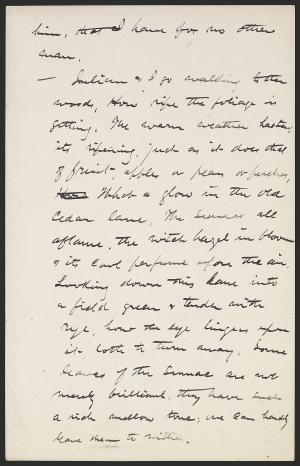 him, that I have for no other
man.
— Julian & I go walking to the
woods, How ripe the foliage is
getting. The warm weather hastens
its ripening, just as it does that
of fruit, apples or pears or peaches,
What a glow in the old
Cedar lane, The Sumac all
aflame, the witch hazel in bloom
& its cool perfume upon the air.
Looking down this lane into
a field green & tender with
rye, how the eye lingers upon
it loth to turn away, Some
leaves of the sumac are not
merely brilliant, they have such
a rich mellow tone; we can hardly
leave them to wither.